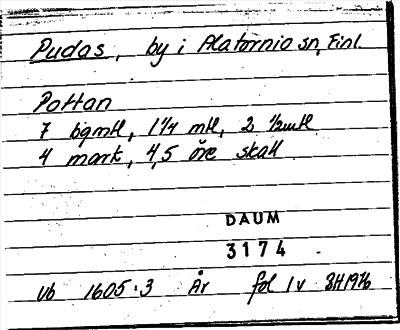 Pudas, by i Alatornio sn, Finl.
Pottan
7 bgmtl, 1 1/4 mtl, 2 1/2 mtl
4 mark, 4,5 öre skatt
DAUM
3174
Vb 1605:3 År fol 1v SH1976